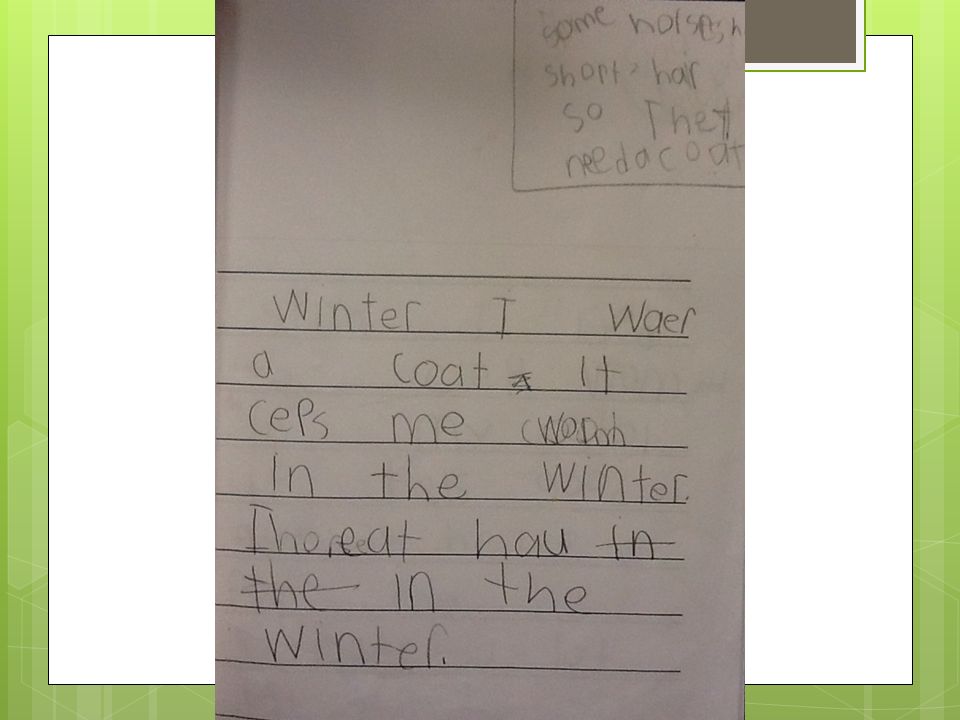 some horses h
short hair
so They
need a coat
Winter I Waer
a coat. It
ceps me worm
in the winter.
eat hau in
the in the
winter.